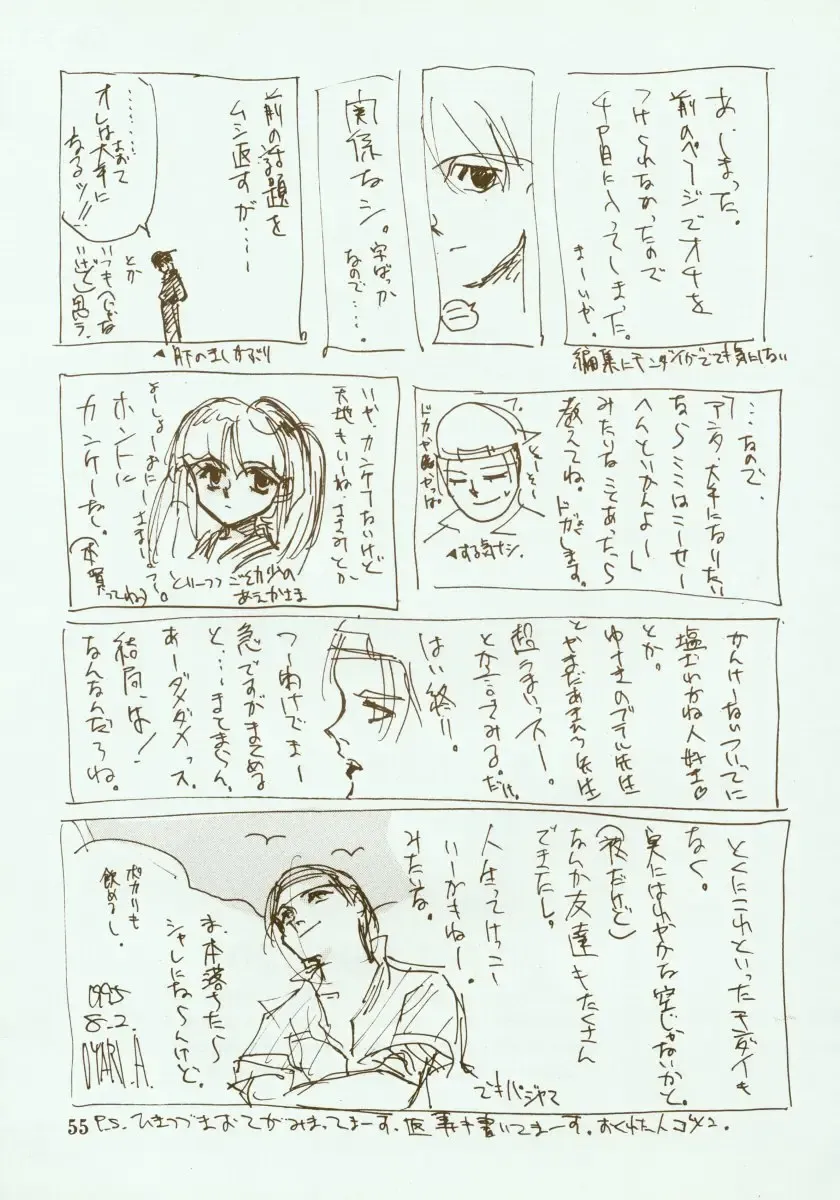 あ、しまった。
前のページでオチを
つけられなかったので
4P目に入ってしまった。
まーいいか。
編集にモンダイがでても気にしない
関係ナシ。
字ばっか
なので…。
前の話題を
ムシ返すが…
…………
オレは大手に
なるッ!!
とか
いつもヘンな
◀肝のましかぶり
…なので、
「アンタ、大手になりたい
ならミミはこーせー
へんといかんよー」
みたいなことあったら
教えてね。ドガします。
◀する気ナシ。
いや、カンケーないけど
天地もいいね、ささみとか
ホントに
カンケーなし。
ご幼少の
あえかさま
かんけーないついでに
とか。
ゆうきのブラル先生
とやまだあきひろ先生
超うまいっスー。
とか言ってみる。だけ。
はい終り。
つーわけでまー
急ですがまとめる
と…まてまてらん。
あーダメダメっス
結局、は!
なんなんだろね。
とくにこれといったモンダイも
なく。
実にはれやかな空じゃないかと。
(夜だけど)
なんか友達もたくさん
できたし。
人生ってけっこー
いーかもねー。
みたいな。
ま、本落ちたら
シャレにならんけど。
ポカリも
飲めるし。
1995
8.2.
OYARI.A.
でもパジャマ
55
P.S. ひきつづきおてがみまってまーす。返事も書いてまーす。おくれた人ゴメン。